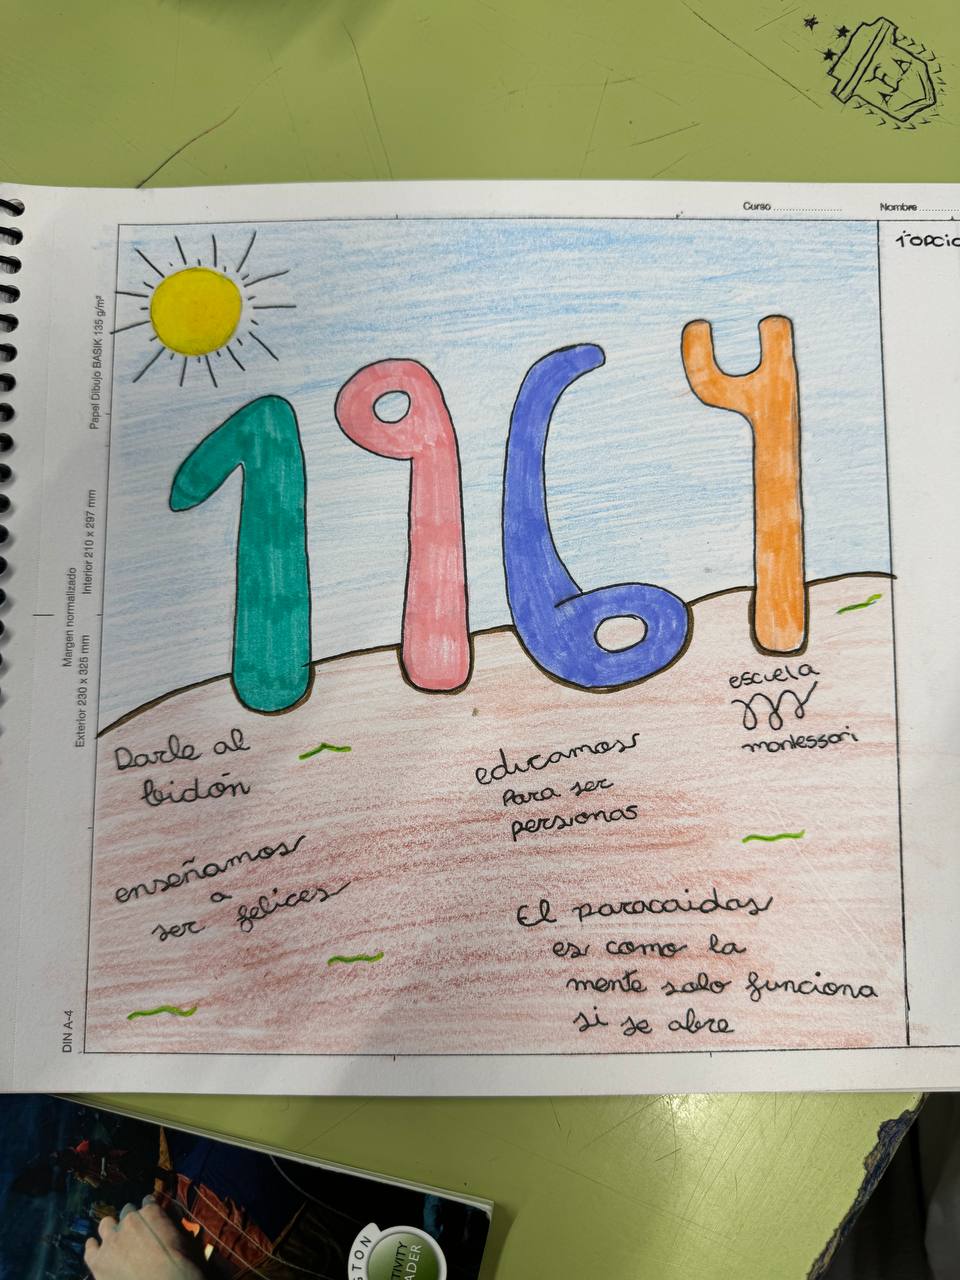 AFA
Curso
Nombre
1ºopcio
Papel Dibujo BASIK 135 g/m²
Margen normalizado
Interior 210 x 297 mm
Exterior 230 x 325 mm
DIN A-4
1964
escuela
montessori
Darle al
bidón
educamos
Para ser
personas
enseñamos
a
ser felices
El paracaidas
es como la
mente solo funciona
si se abre
GTON
TIVITY
ADER